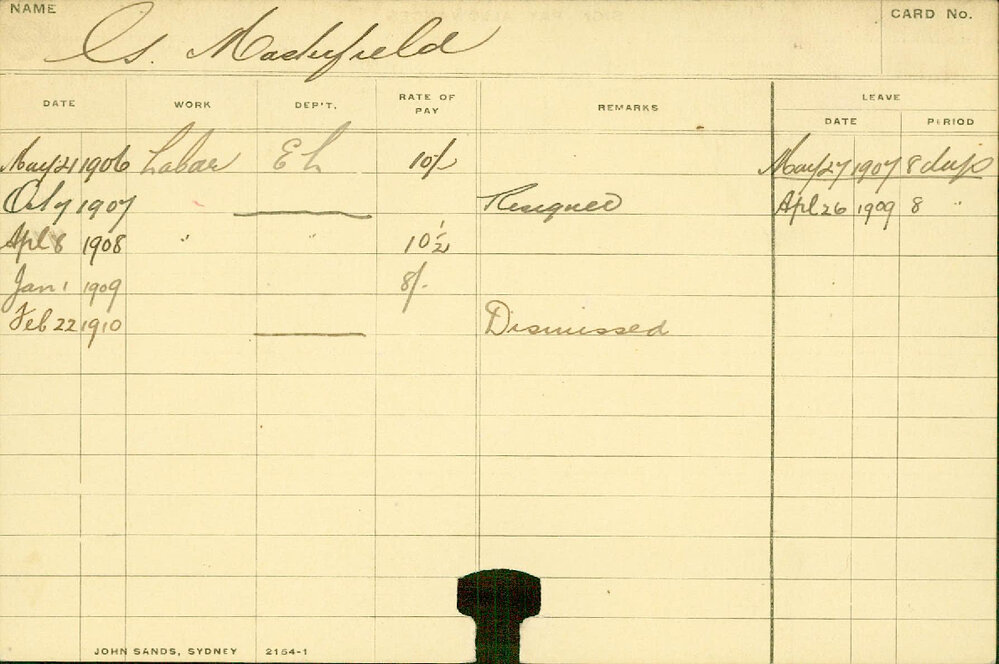 NAME
CARD No.
Mackfield
DATE WORK DEP'T. RATE OF PAY REMARKS LEAVE
DATE PERIOD
May 21 1906 Labor E L 10/- May 27 1907 8 days
Oct 7 1907 Resigned Apl 26 1909 8 "
Apl 8 1908 " " 10 1/2
Jan 1 1909 8/-
Feb 22 1910 Dismissed
JOHN SANDS, SYDNEY 2154-1